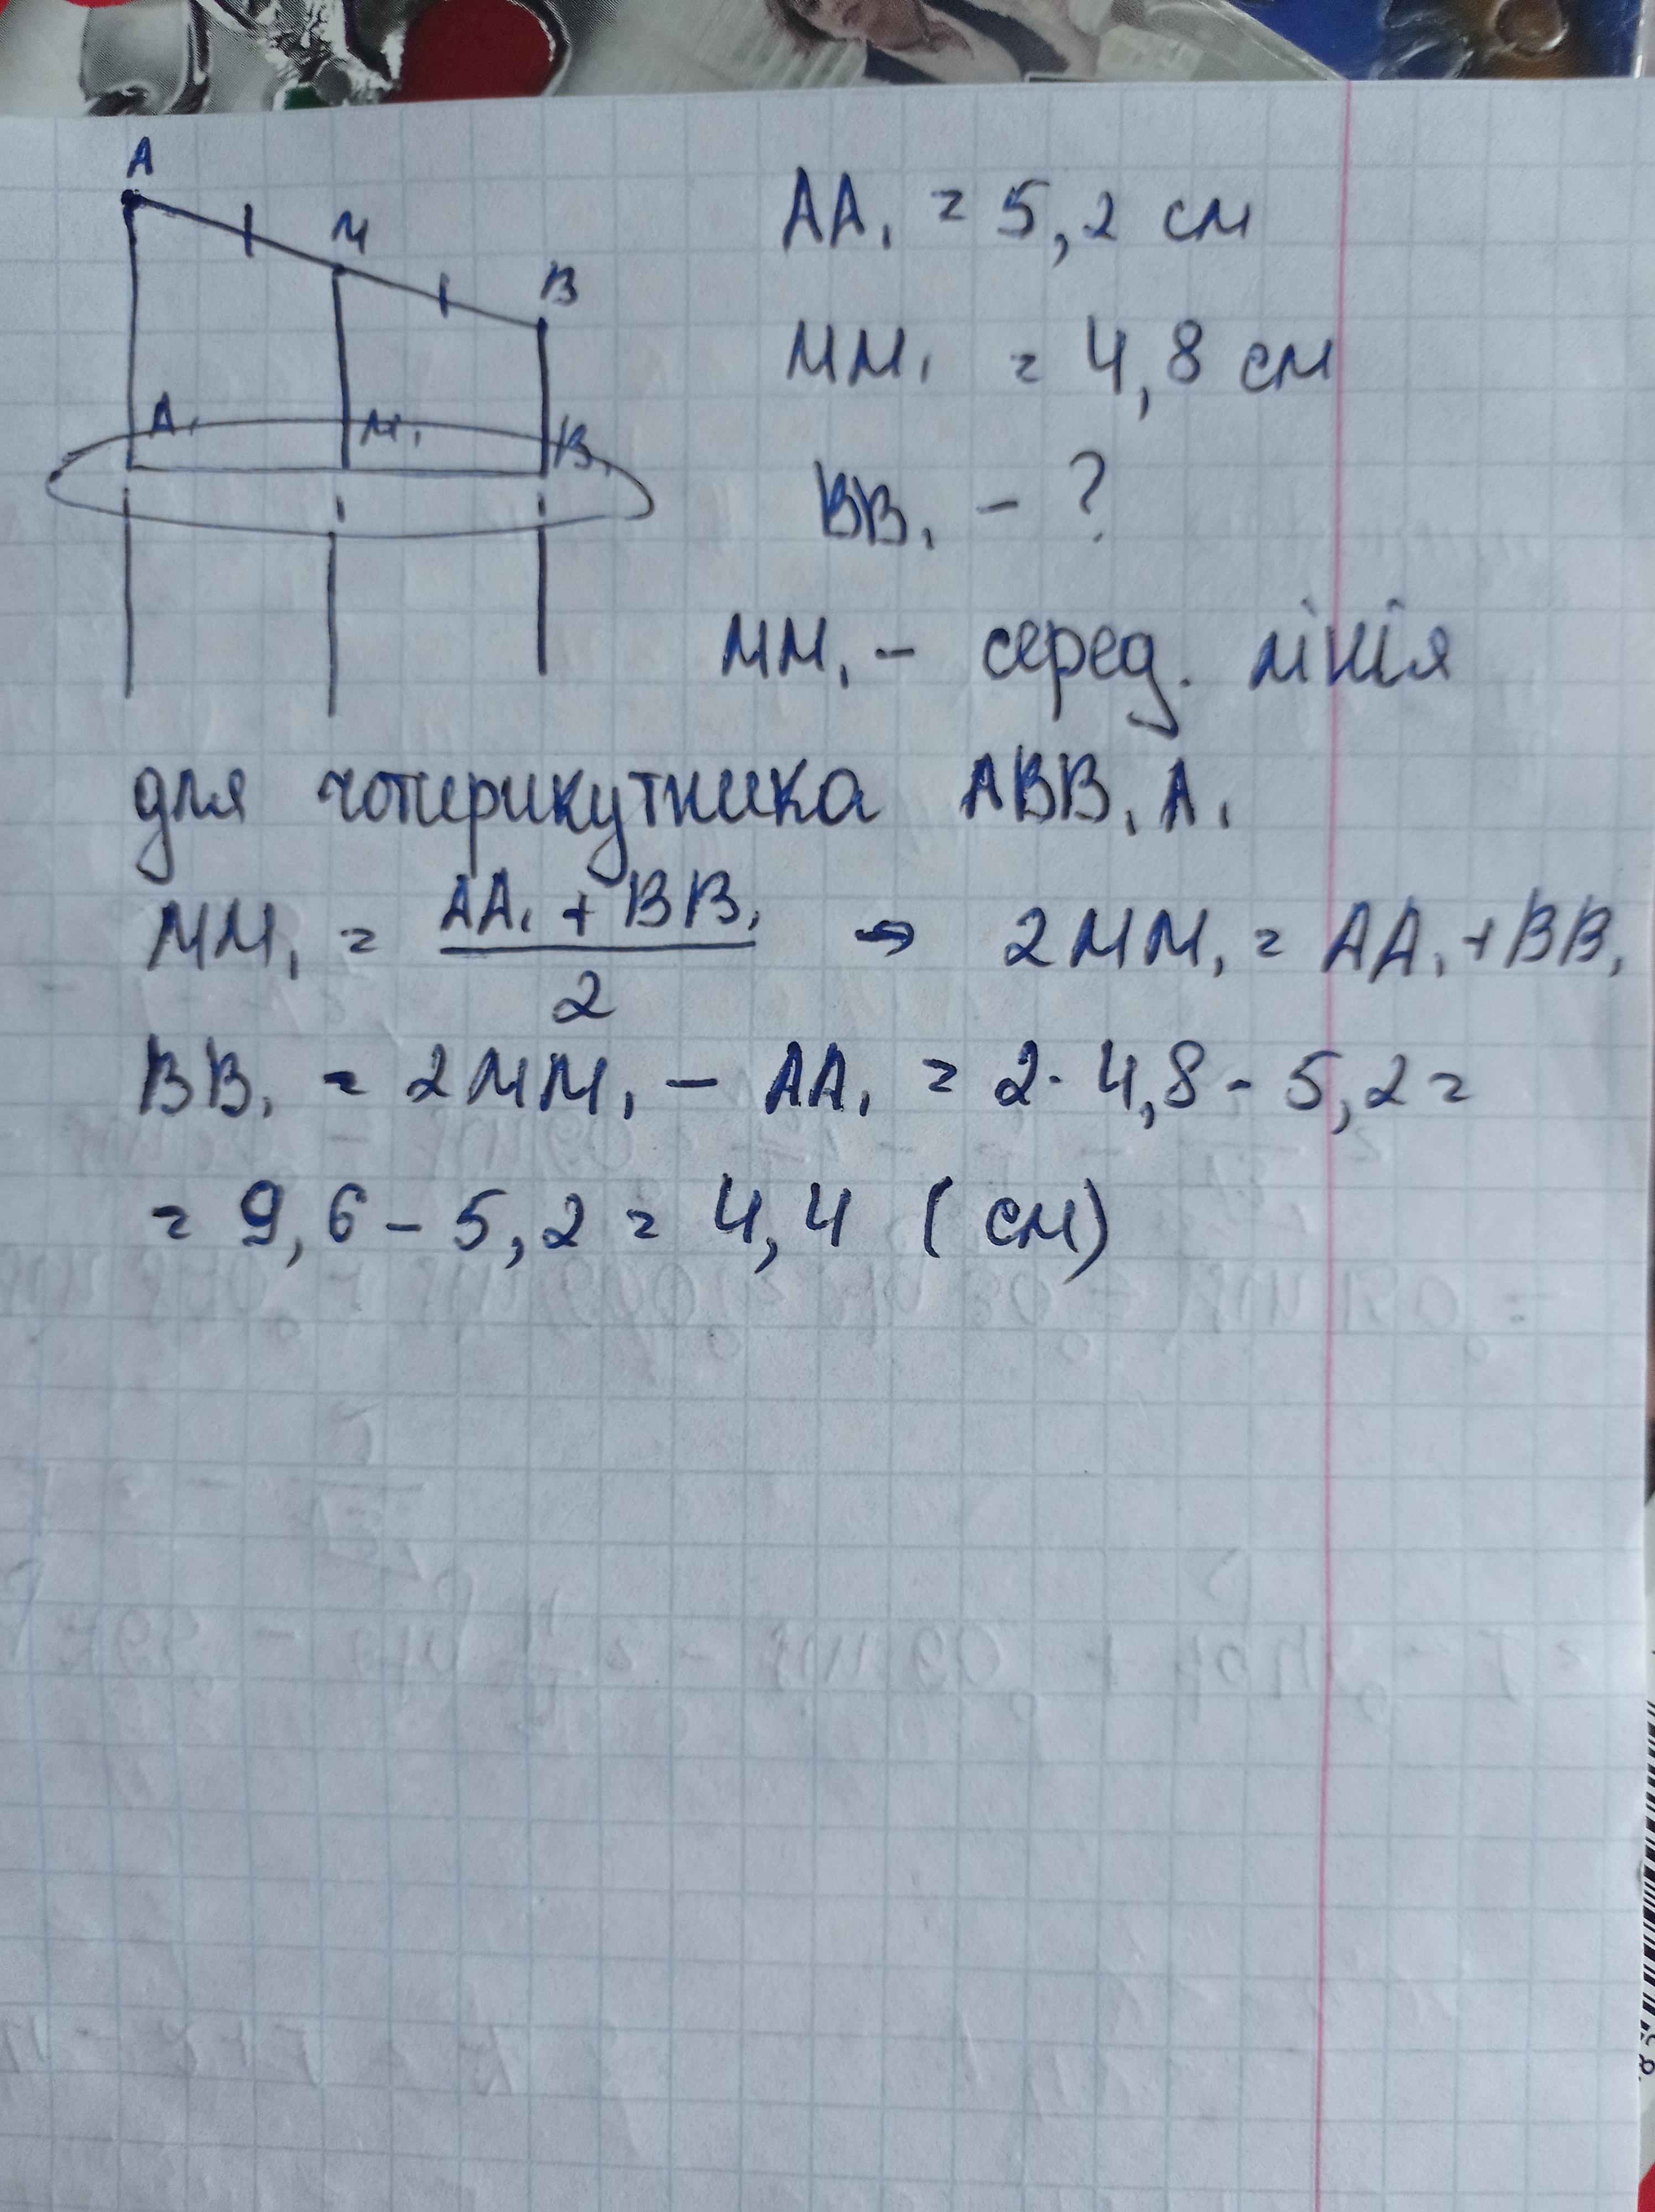 A
M
B
A₁ M₁ B₁
AA₁ = 5,2 см
MM₁ = 4,8 см
BB₁ - ?
MM₁ - серед. лінія
для чотирикутника ABB₁A₁
MM₁ = (AA₁ + BB₁)/2 → 2MM₁ = AA₁ + BB₁
BB₁ = 2MM₁ - AA₁ = 2·4,8 - 5,2 =
= 9,6 - 5,2 = 4,4 (см)